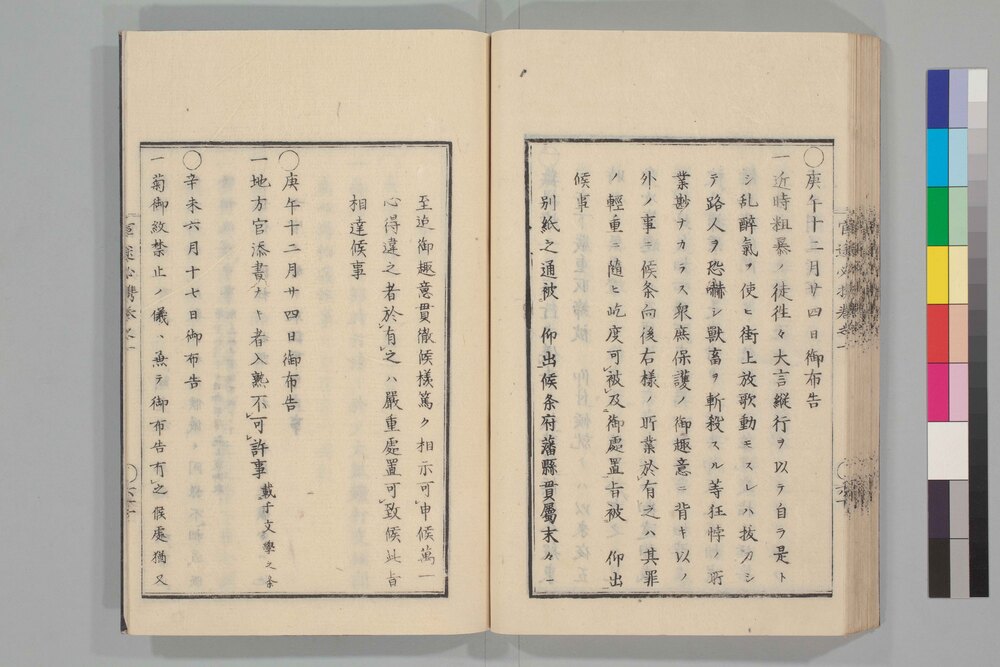 ○庚午十二月廿四日御布告
一近時粗暴ノ徒往々大言縦行ヲ以テ自ラ是ト
シ乱醉氣ヲ使ヒ街上放歌動モスレハ抜刀シ
テ路人ヲ恐赫シ獣畜ヲ斬殺スル等狂悖ノ所
業尠ナカラス衆庶保護ノ御趣意ニ背キ以ノ
外ノ事ニ候条向後右様ノ所業於有之ハ其罪
ノ輕重ニ隨ヒ屹度可被及御處置旨被 仰出
候事
別紙之通被 仰出候条府藩縣貫屬末々ニ
至迄御趣意貫徹候樣篤ク相示可申候萬一
心得違之者於有之ハ嚴重處置可致候此旨
相達候事
○庚午十二月廿四日御布告
一地方官添書ナキ者入熟不可許事 載于文學之条
○辛未六月十七日御布告
一菊御紋禁止ノ儀ハ兼テ御布告有之候處猶又